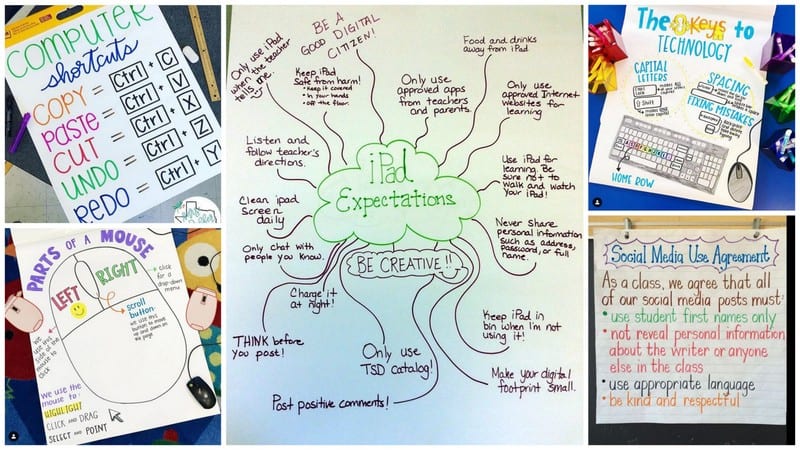 COMPUTER
shortcuts
COPY = Ctrl + C
PASTE = Ctrl + V
CUT = Ctrl + X
UNDO = Ctrl + Z
REDO = Ctrl + Y
PARTS OF A MOUSE
LEFT
RIGHT
click
for a
drop-down
menu
scroll
button:
we use this
button to move
up and down on
the page
we
use this
side of the
mouse to
click
We use the
mouse to:
HIGHLIGHT
CLICK AND DRAG
SELECT AND POINT
iPad
Expectations
BE A
GOOD DIGITAL
CITIZEN!
Only use iPad
when the teacher
tells me.
Keep iPad
Safe from harm!
• Keep it covered
• In your hands
• off the floor.
Food and drinks
away from iPad
Only use
approved apps
from teachers
and parents.
Only use
approved Internet
websites for
learning
Listen and
follow teacher's
directions.
Use iPad for
learning. Be
sure not to
walk and watch
your iPad!
Clean ipad
screen
daily
Only chat with
people you know.
Never share
personal information
such as address,
password, or full
name.
BE CREATIVE!!
Charge it
at night!
THINK before
you post!
Keep iPad in
bin when I'm not
using it!
Only use
TSD catalog!
Make your digital
footprint small.
Post positive comments!
The 3 Keys to
TECHNOLOGY
CAPITAL
LETTERS
Shift
SPACING
FIXING MISTAKES
HOME ROW
Social Media Use Agreement
As a class, we agree that all
of our social media posts must:
• use student first names only
• not reveal personal information
about the writer or anyone
else in the class
• use appropriate language
• be kind and respectful